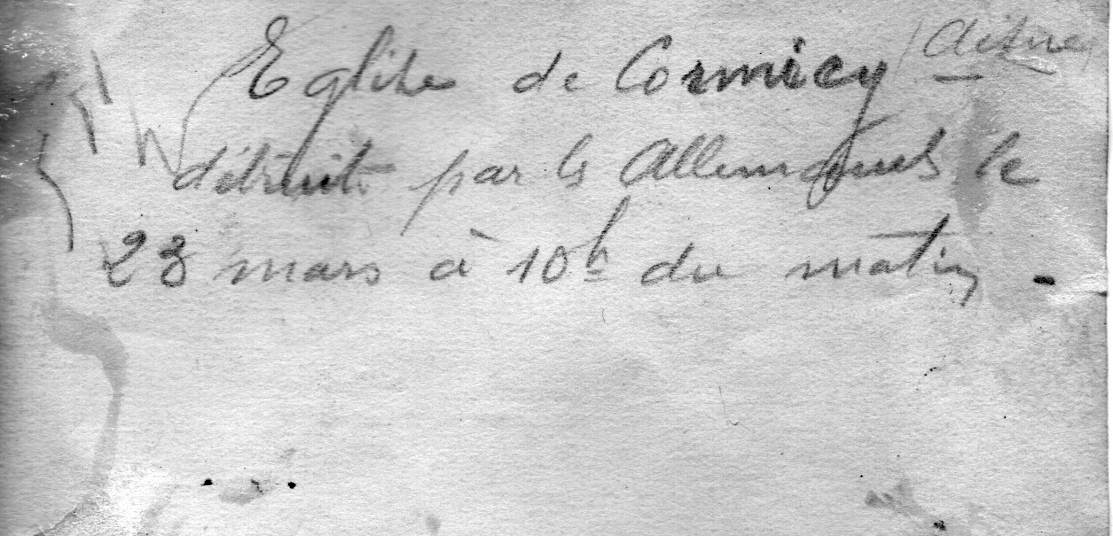 Eglise de Cormicy (Aisne)
détruit par les Allemands le
23 mars à 10h du matin.